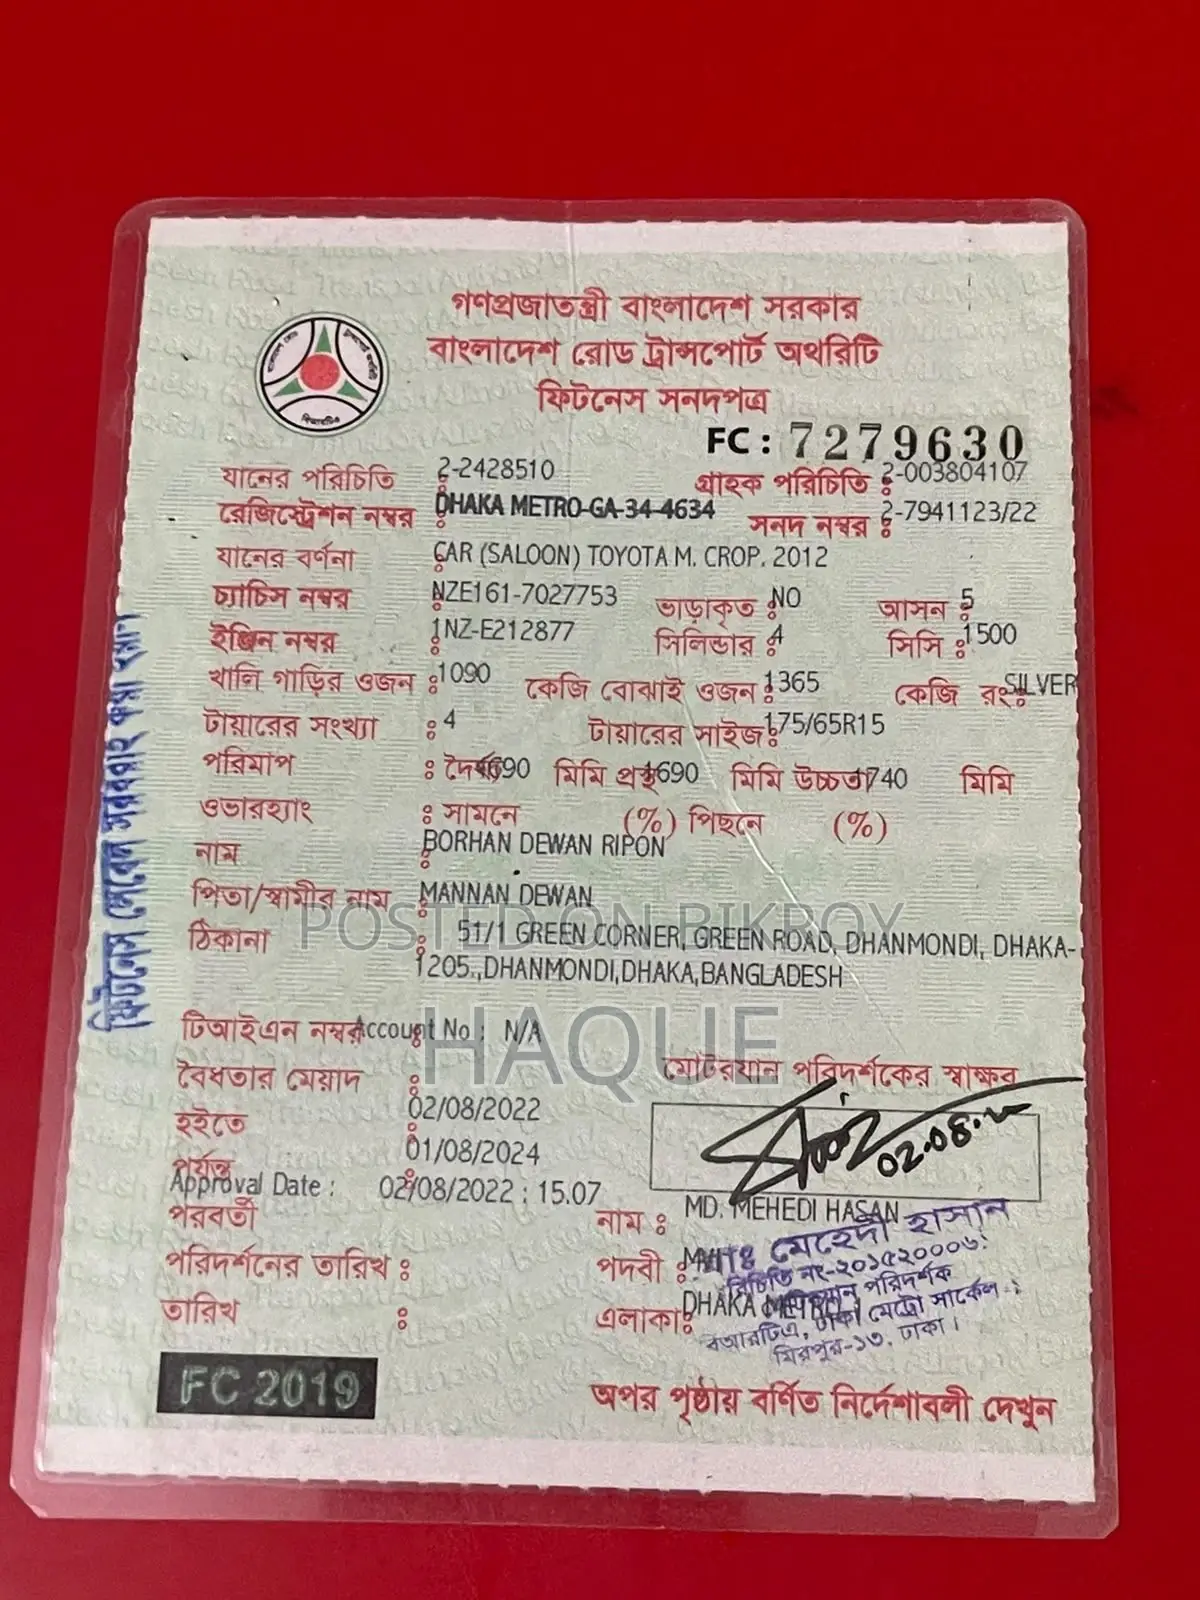 গণপ্রজাতন্ত্রী বাংলাদেশ সরকার
বাংলাদেশ রোড ট্রান্সপোর্ট অথরিটি
ফিটনেস সনদপত্র
FC : 7279630
যানের পরিচিতি : 2-2428510 গ্রাহক পরিচিতি : 2-003804107
রেজিস্ট্রেশন নম্বর : DHAKA METRO-GA-34-4634 সনদ নম্বর : 2-7941123/22
যানের বর্ণনা : CAR (SALOON) TOYOTA M. CROP. 2012
চ্যাচিস নম্বর : NZE161-7027753 ভাড়াকৃত : NO আসন : 5
ইঞ্জিন নম্বর : 1NZ-E212877 সিলিন্ডার : 4 সিসি : 1500
খালি গাড়ির ওজন : 1090 কেজি বোঝাই ওজন : 1365 কেজি রং : SILVER
টায়ারের সংখ্যা : 4 টায়ারের সাইজ : 175/65R15
পরিমাপ : দৈর্ঘ্য 4690 মিমি প্রস্থ 1690 মিমি উচ্চতা 1740 মিমি
ওভারহ্যাং : সামনে (%) পিছনে (%)
নাম : BORHAN DEWAN RIPON
পিতা/স্বামীর নাম : MANNAN DEWAN
POSTED ON BIKROY
ঠিকানা : 51/1 GREEN CORNER, GREEN ROAD, DHANMONDI, DHAKA-
1205.,DHANMONDI,DHAKA,BANGLADESH
HAQUE
টিআইএন নম্বর : Account No : N/A
বৈধতার মেয়াদ : মোটরযান পরিদর্শকের স্বাক্ষর
হইতে : 02/08/2022
02.08.22
পর্যন্ত : 01/08/2024
Approval Date : 02/08/2022 : 15.07
পরবর্তী নাম : MD. MEHEDI HASAN
মেহেদী হাসান
পরিদর্শনের তারিখ : পদবী :
পরিচিতি নং-২০১৫২০০০৬
মোটরযান পরিদর্শক
তারিখ : এলাকা : DHAKA METRO
বিআরটিএ, ঢাকা মেট্রো সার্কেল-১
মিরপুর-১৩, ঢাকা।
FC 2019
অপর পৃষ্ঠায় বর্ণিত নির্দেশাবলী দেখুন
ফিটনেস লেবেল সরবরাহ করা হলো